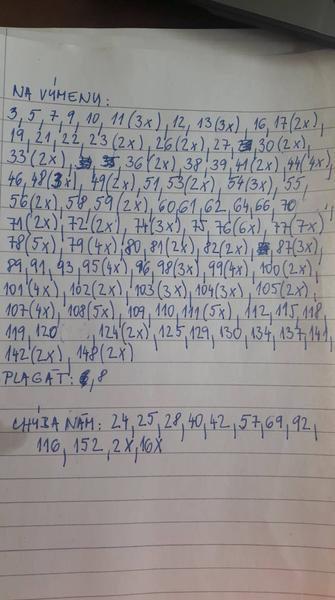 NA VÝMENU:
3, 5, 7, 9, 10, 11(3x), 12, 13(3x), 16, 17(2x),
19, 21, 22, 23(2x), 26(2x), 27, 30(2x),
33(2x), 36(2x), 38, 39, 41(2x), 44(4x),
46, 48(3x), 49(2x), 51, 53(2x), 54(3x), 55,
56(2x), 58, 59(2x), 60, 61, 62, 64, 66, 70,
71(2x), 72(2x), 74(3x), 75, 76(6x), 77(7x),
78(5x), 79(4x), 80, 81(2x), 82(2x), 87(3x),
89, 91, 93, 95(4x), 96, 98(3x), 99(4x), 100(2x),
101(4x), 102(2x), 103(3x), 104(3x), 105(2x),
107(4x), 108(5x), 109, 110, 111(5x), 112, 115, 118,
119, 120, 124(2x), 125, 129, 130, 134, 137, 141,
142(2x), 148(2x)
PLAGÁT: 8
CHÝBA NÁM: 24, 25, 28, 40, 42, 57, 69, 92,
116, 152, 2X, 16X